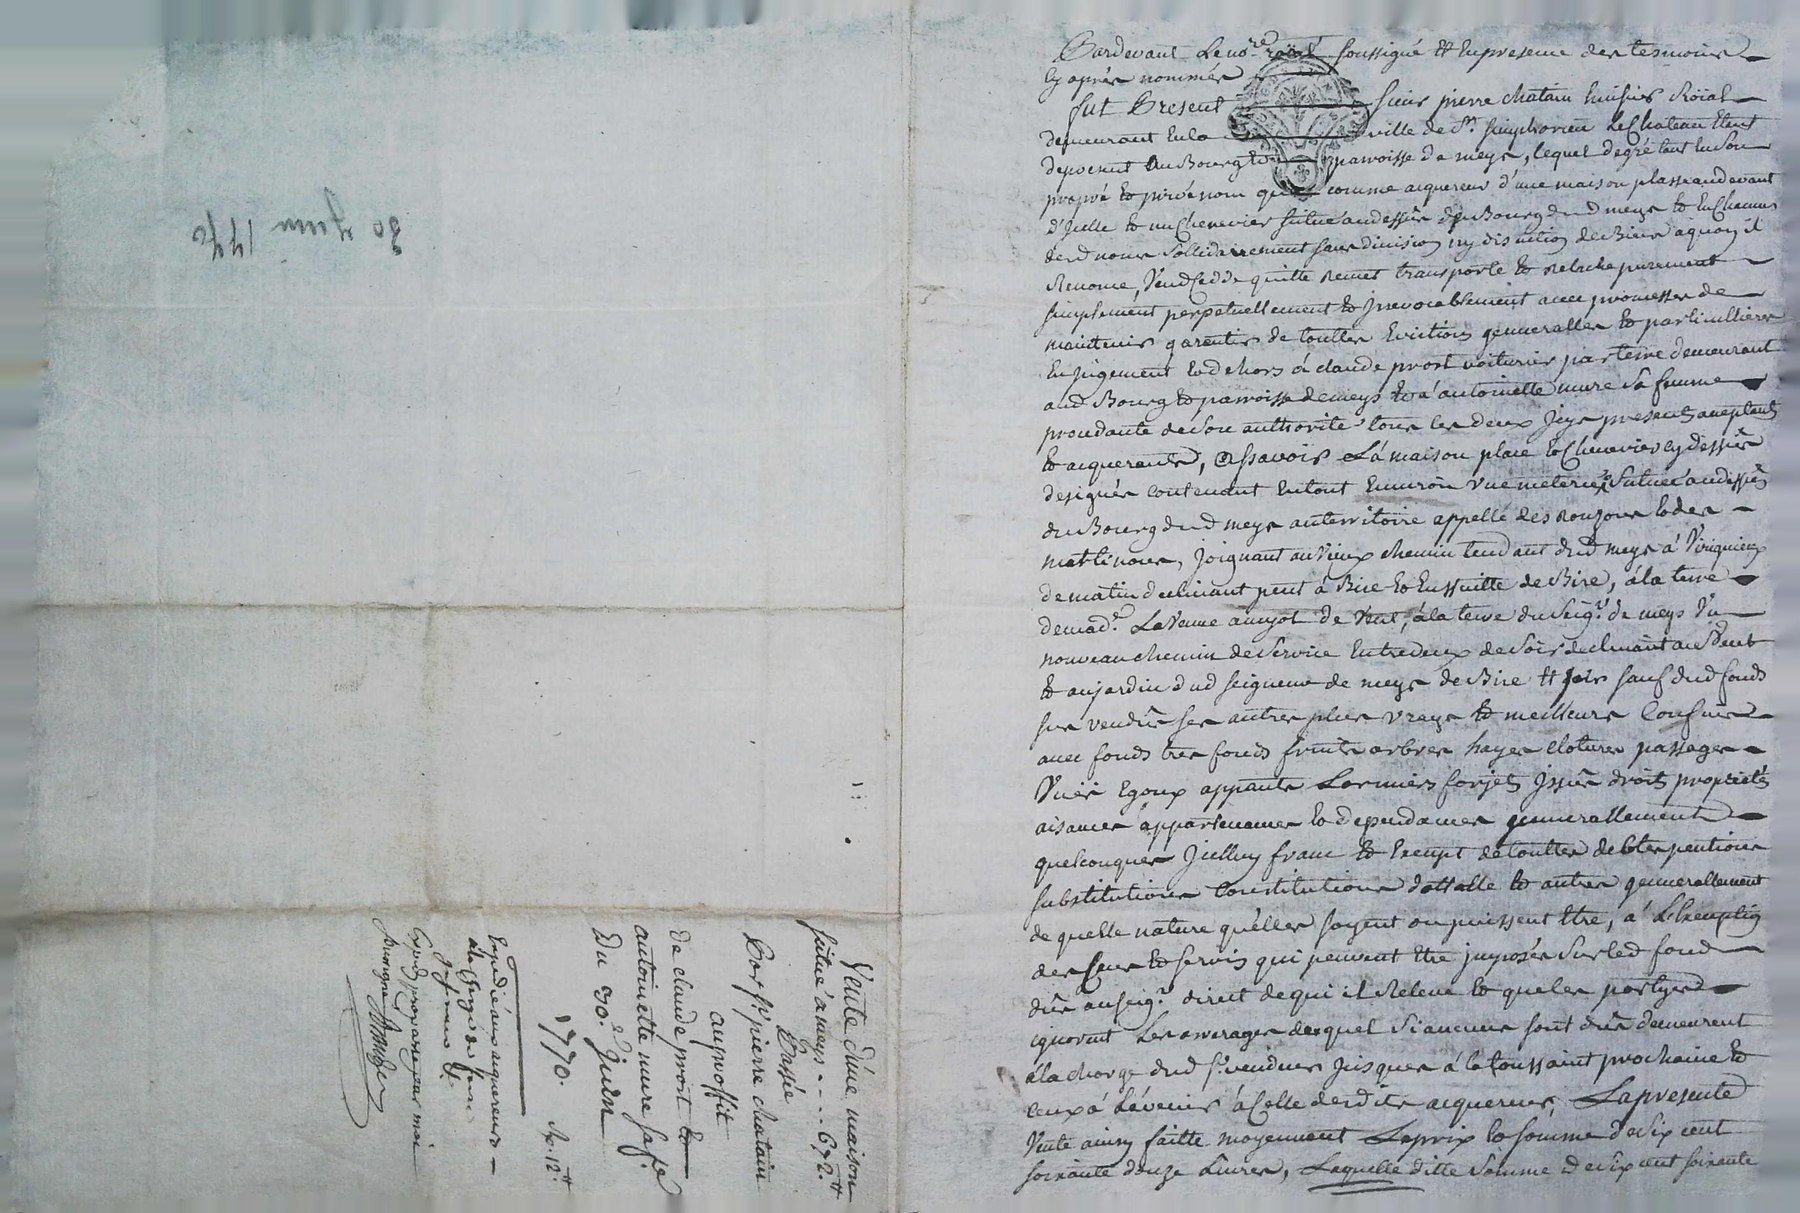 Pardevant Le no.re roial soussigné Et En presence des tesmoins
Cy aprés nommés
fut Present sieur pierre chatain huissier Roïal
demeurant En la ville de St. simphorien Le Chateau Etant
de present au Bourg Et parroisse de meys, lequel de gré tant En son
propre Et privé nom que comme acquereur d'une maison plasse au devant
d'Icelle Et un Chenevier situé au dessûs du Bourg dud meys Et En Chacun
desd noms sollidairement sans division ny discution de Biens a quoy il
Renonce, Vend Cedde quitte Remet transporte Et Relache purement
simplement perpetuellement Et Irrevocablement avec promesse de
maintenir garentir de touttes Evictions generalles Et particullieres
En Jugement Et dehors á claude prost voiturier par terre demeurant
aud Bourg Et parroisse de meys Et á antoinette mure Sa femme
procedante de Son authorité tous les deux Icy presents aceptants
Et acquerants, assavoir La maison place Et Chenevier cy dessûs
designés contenant En tout Environ une meterée Situés au dessûs
du Bourg dud meys au territoire appellé des Et des
martinons, Joignant au Vieux chemin tendant dud meys á Viriqnieux
de matin declinant peut á Bise Et En suitte de Bise, á la terre
de mad.e La Veuve amyot de Vent, á la terre du Seig.r de meys Un
nouveau chemin de Service Entredeux de Soir declinant au Vent
Et au jardin dud seigneur de meys de Bise Et soir sauf dud fonds
sus vendû ses autres plus vrays Et meilleurs Confins
avec fonds tres fonds fruits arbres hayes clotures passages
Vuës Egoux appants Larmiers forjets Issûes droits proprietés
aisances appartenances Et dependances generallement
quelconques Icelluy franc Et Exempt de touttes debtes pentions
substitutions Constitutions dottalle Et autres generallement
de quelle nature qu'elles soyent ou puissent Etre, á L'Exeption
des Cens Et servis qui peuvent Etre imposés Sur led fond
dûs au seig.r direct de qui il Releve Et que les partyes
ignorent Les arrerages desquel Si aucuns sont dûs demeurent
á la charge dud Sr. vendeur Jusques á la toussaint prochaine Et
ceux á L'avenir á Celle desdits acquereurs, La presente
Vente ainsy faitte moyennant Le prix Et somme de Six cent
soixante douze Livres, Laquelle ditte Somme de Six cent soixante
30 Juin 1770
Vente d'une maison
située á meys . . . . 672.tt
Passée
Par Sr. pierre chatain
au proffit
de claude prost Et
antoinette mure sa fe
Du 30.e Juin
1770. 12.tt
Expedié aux acquereurs